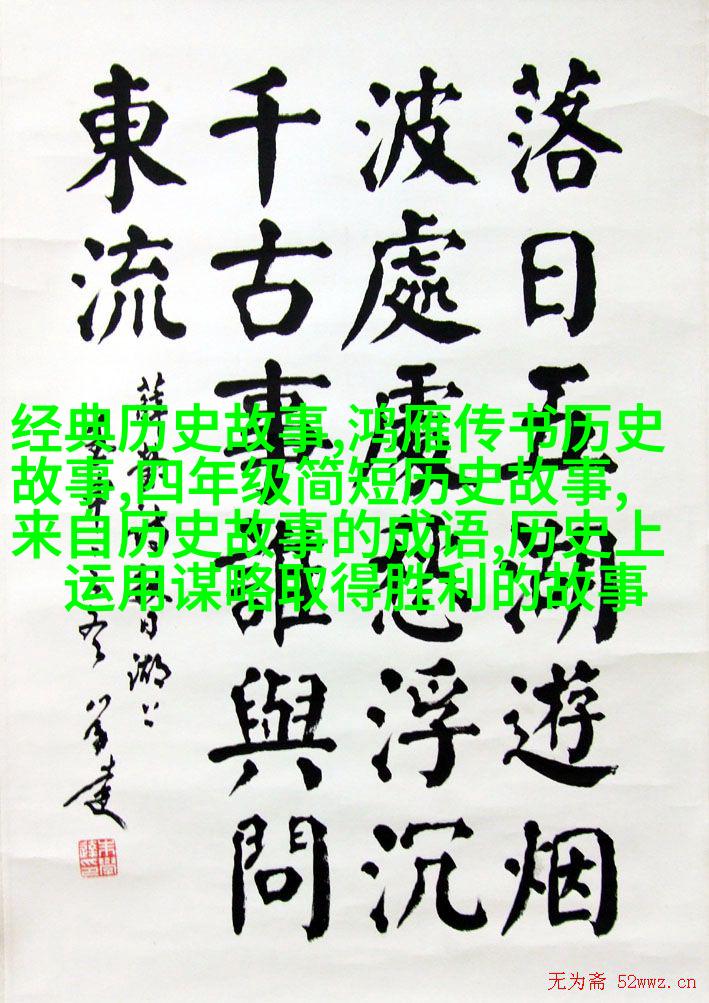 落日五湖遊烟
波處處愁浮沉
千古事誰與問
東流
薛瑩詩秋日湖上
经典历史故事,鸿雁传书历史
故事,四年级简短历史故事,
来自历史故事的成语,历史上
运用谋略取得胜利的故事
无为斋 52wwz.cn